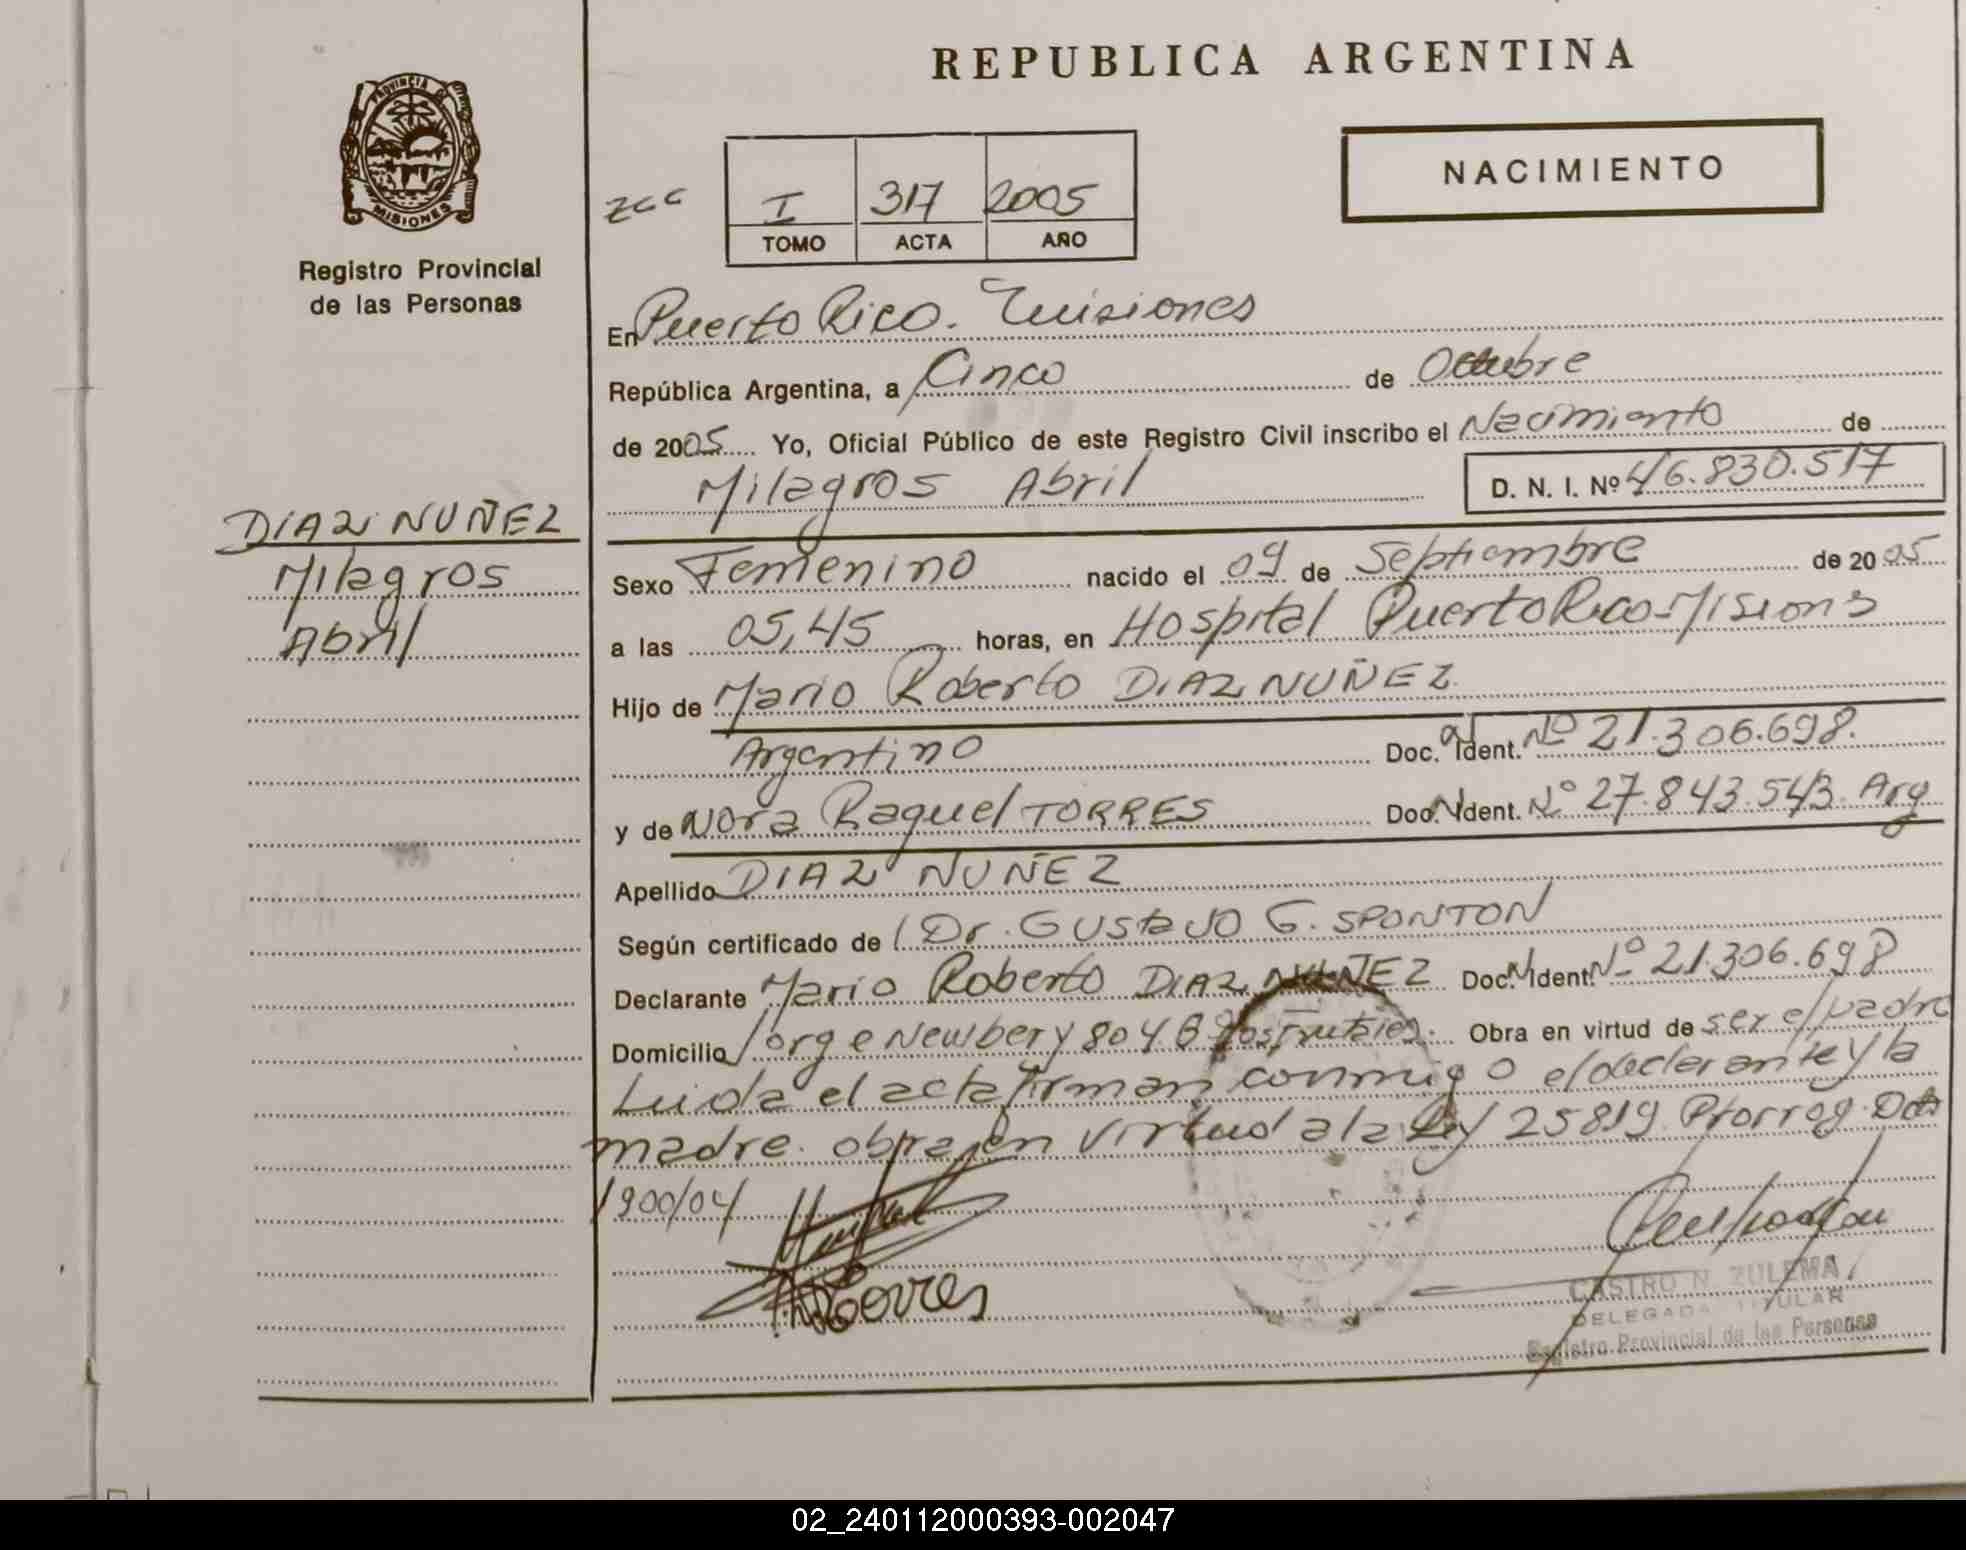 REPUBLICA ARGENTINA
PROVINCIA DE
MISIONES
Registro Provincial
de las Personas
NACIMIENTO
I 317 2005
TOMO ACTA AÑO
En Puerto Rico. Misiones
República Argentina, a Cinco de Octubre
de 2005 Yo, Oficial Público de este Registro Civil inscribo el Nacimiento de
Milagros Abril D. N. I. Nº 46.830.517
DIAZ NUÑEZ
Milagros
Abril
Sexo Femenino nacido el 09 de Septiembre de 2005
a las 05,45 horas, en Hospital Puerto Rico Misions
Hijo de Mario Roberto DIAZ NUÑEZ
Argentino Doc. Ident. Nº 21.306.698.
y de Nora Raquel TORRES Doc. Ident. Nº 27.843.543. Arg
Apellido DIAZ NUÑEZ
Según certificado de Dr. GUSTAVO G. SPONTON
Declarante Mario Roberto DIAZ NUÑEZ Doc. Ident. Nº 21.306.698
Domicilio Jorge Newbery 804 Obra en virtud de ser el padre
Leida el acta firman conmigo el declarante y la
madre. obra en virtud a la Ley 25819. Prorrog. Dto
1900/04
Torres
CASTRO N. ZULEMA
DELEGADA TITULAR
Registro Provincial de las Personas
02_240112000393-002047